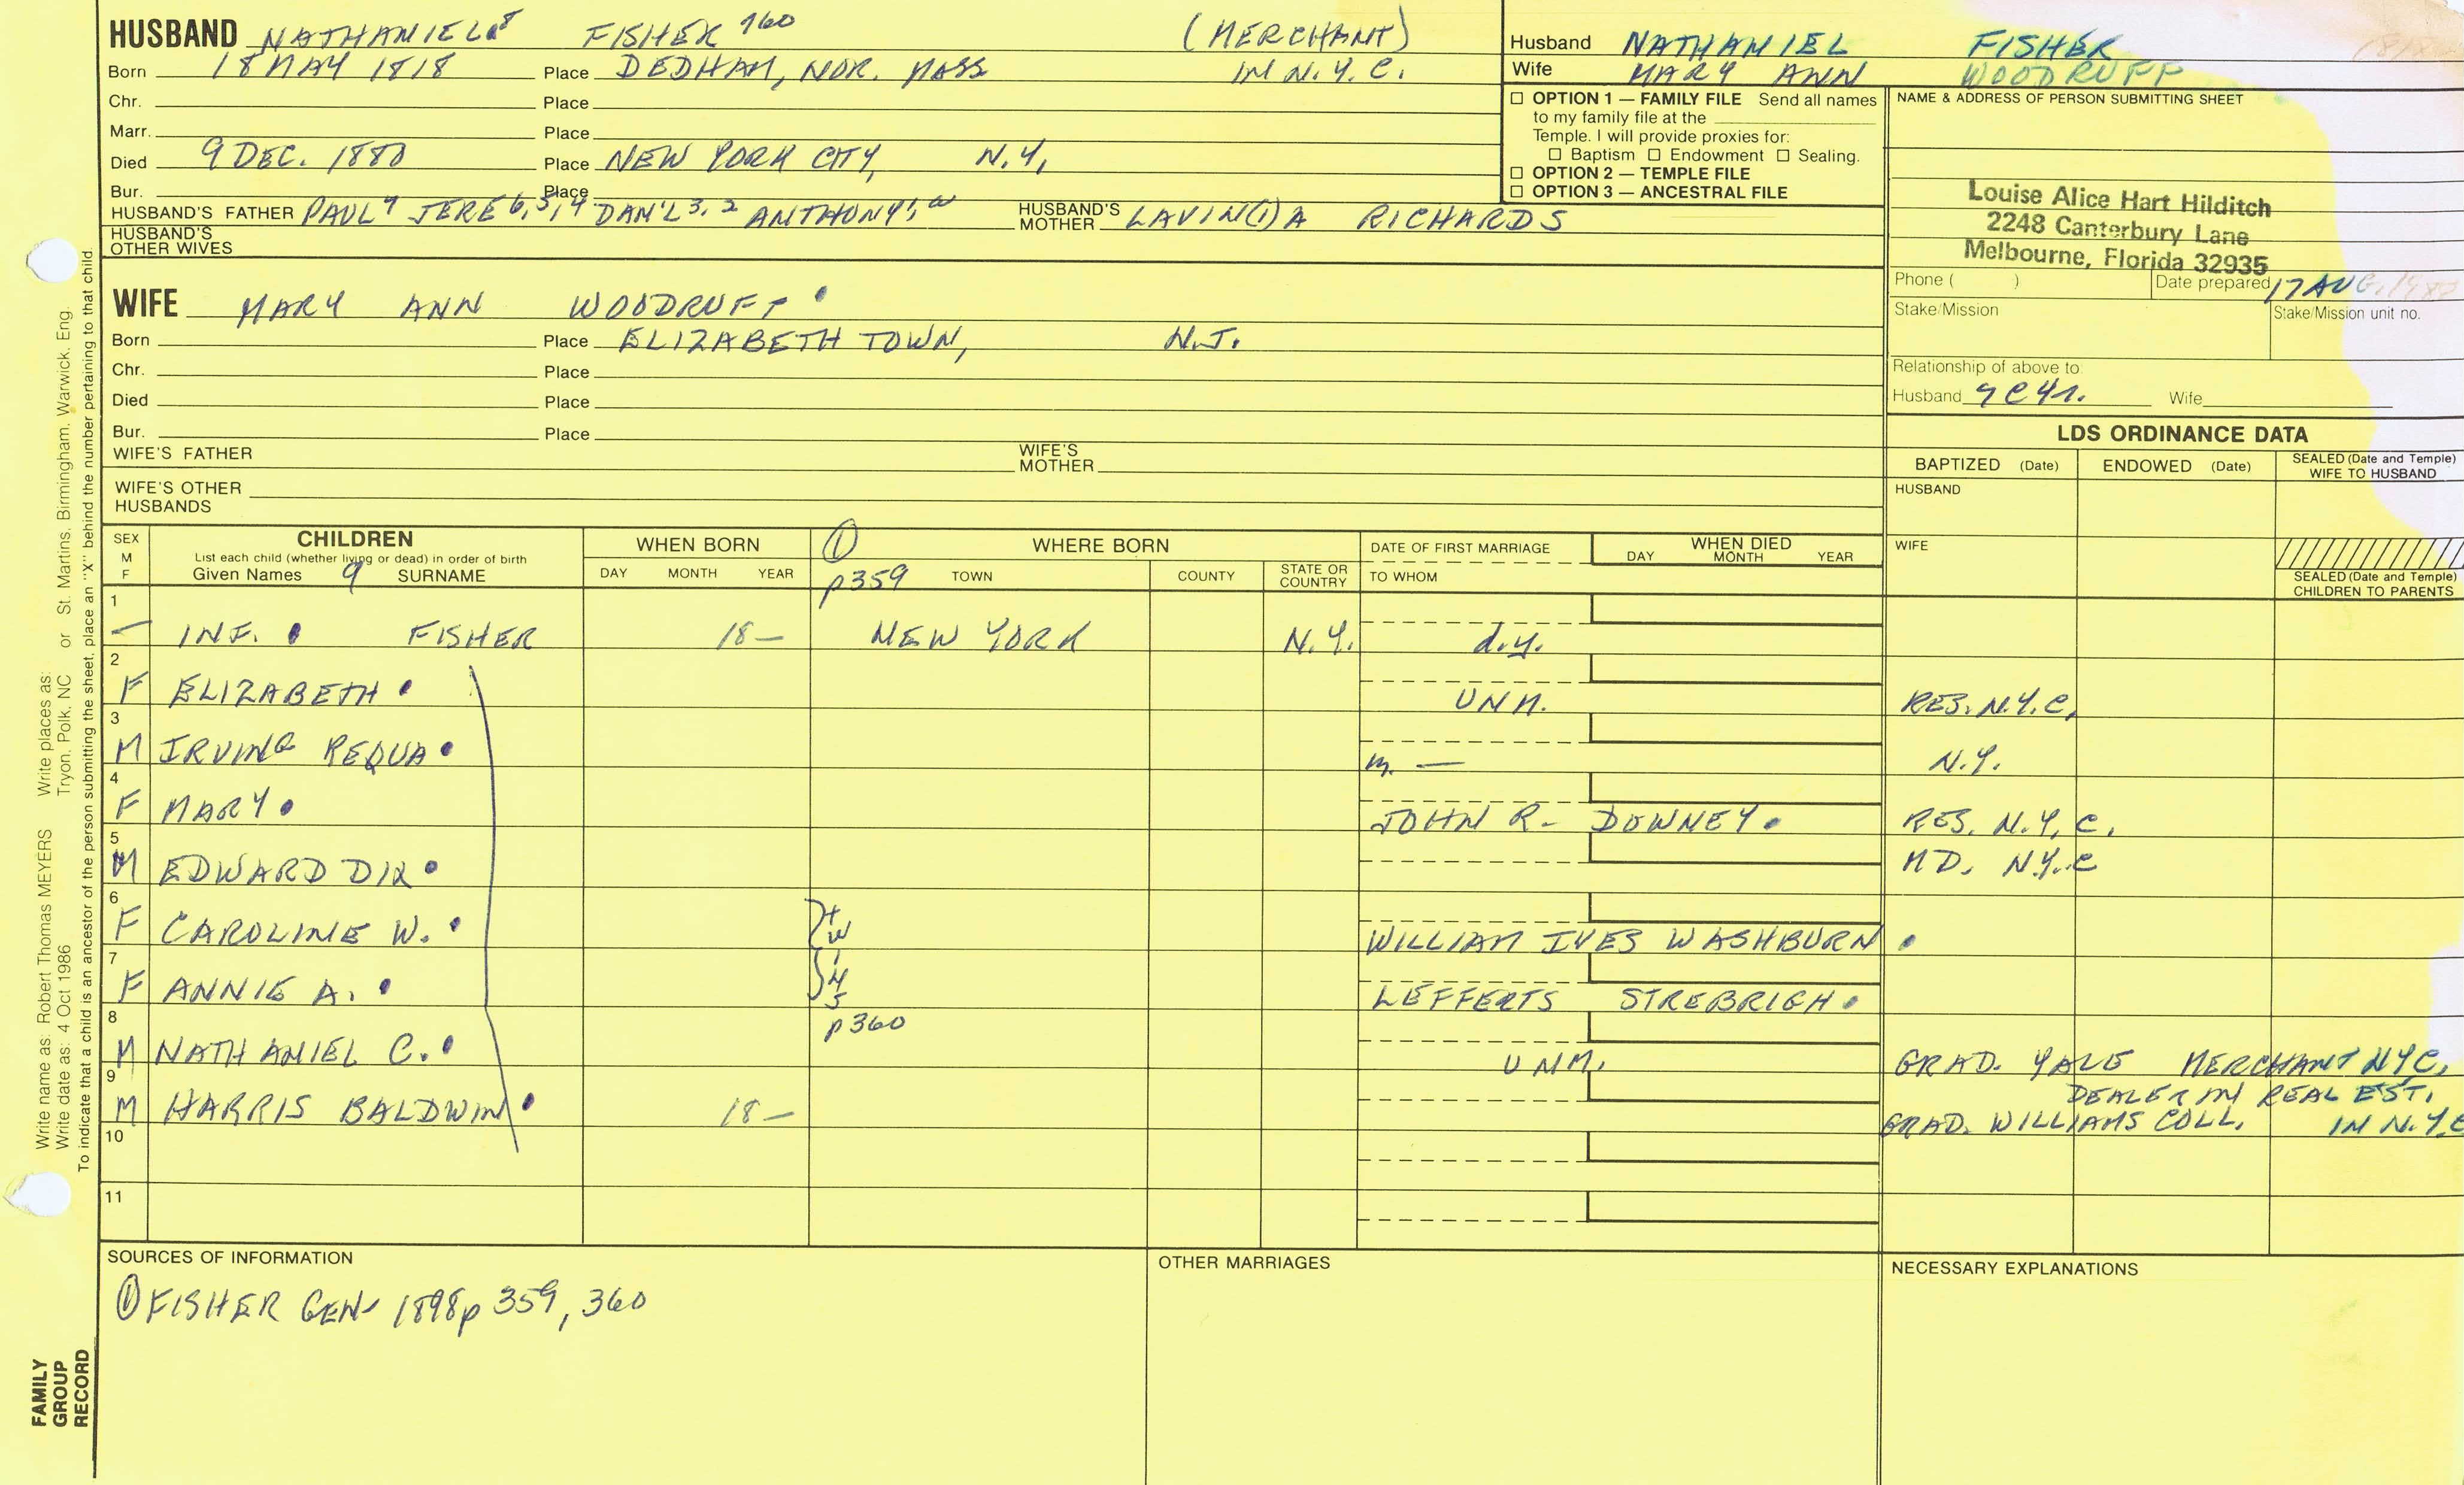 HUSBAND NATHANIEL⁸ FISHER ⁷⁶⁰ (MERCHANT)
Born 18 MAY 1818 Place DEDHAM, NOR. MASS IN N.Y.C.
Chr. Place
Marr. Place
Died 9 DEC. 1880 Place NEW YORK CITY, N.Y.
Bur. Place
HUSBAND'S FATHER PAUL⁷ JERE⁶,⁵,⁴ DAN'L³,² ANTHONY¹, HUSBAND'S MOTHER LAVIN(I)A RICHARDS
HUSBAND'S OTHER WIVES
Husband NATHANIEL FISHER
Wife MARY ANN WOODRUFF
☐ OPTION 1 — FAMILY FILE Send all names
to my family file at the
Temple. I will provide proxies for:
☐ Baptism ☐ Endowment ☐ Sealing.
☐ OPTION 2 — TEMPLE FILE
☐ OPTION 3 — ANCESTRAL FILE
NAME & ADDRESS OF PERSON SUBMITTING SHEET
Louise Alice Hart Hilditch
2248 Canterbury Lane
Melbourne, Florida 32935
Phone ( ) Date prepared 17 AUG.
Stake/Mission Stake/Mission unit no.
Relationship of above to:
Husband 9C4r. Wife
WIFE MARY ANN WOODRUFF
Born Place ELIZABETH TOWN, N.J.
Chr. Place
Died Place
Bur. Place
WIFE'S FATHER WIFE'S MOTHER
WIFE'S OTHER HUSBANDS
LDS ORDINANCE DATA
BAPTIZED (Date) ENDOWED (Date) SEALED (Date and Temple) WIFE TO HUSBAND
HUSBAND
WIFE
SEALED (Date and Temple) CHILDREN TO PARENTS
SEX M F
CHILDREN
List each child (whether living or dead) in order of birth
Given Names 9 SURNAME
WHEN BORN
DAY MONTH YEAR
① WHERE BORN
p359 TOWN COUNTY STATE OR COUNTRY
DATE OF FIRST MARRIAGE
TO WHOM
WHEN DIED
DAY MONTH YEAR
1 — INF. FISHER 18— NEW YORK N.Y. d.y.
2 F ELIZABETH UNM. RES. N.Y.C.
3 M IRVING REQUA m. — N.Y.
4 F MARY JOHN R. DOWNEY RES. N.Y.C.
5 M EDWARD DIX MD. N.Y.C
6 F CAROLINE W. tw WILLIAM IVES WASHBURN
7 F ANNIE A. LEFFERTS STREBRIGH
p360
8 M NATHANIEL C. UNM. GRAD. YALE MERCHANT NYC.
9 M HARRIS BALDWIN 18— DEALER IN REAL EST.
GRAD. WILLIAMS COLL. IN N.Y.C
10
11
SOURCES OF INFORMATION
① FISHER GEN 1898 p 359, 360
OTHER MARRIAGES
NECESSARY EXPLANATIONS
Write name as: Robert Thomas MEYERS Write places as: St. Martins, Birmingham, Warwick, Eng.
Write date as: 4 Oct 1986 Tryon, Polk, NC or
To indicate that a child is an ancestor of the person submitting the sheet, place an "X" behind the number pertaining to that child.
FAMILY
GROUP
RECORD